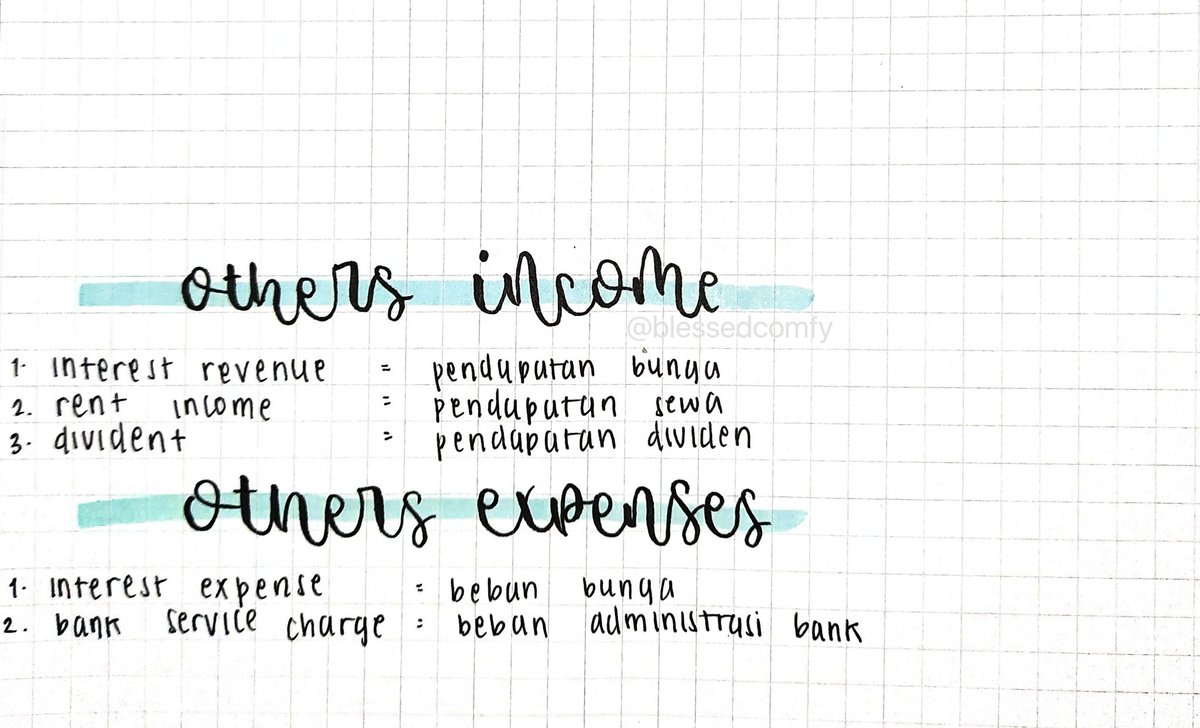 others income
@blessedcomfy
1. interest revenue = pendapatan bunga
2. rent income = pendapatan sewa
3. divident = pendapatan dividen
others expenses
1. interest expense = beban bunga
2. bank service charge = beban administrasi bank